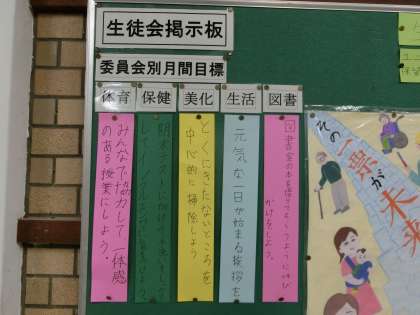 生徒会掲示板
委員会別月間目標
体育
保健
美化
生活
図書
みんなで協力して一体感
のある授業にしよう。
とくにきたないところを
中心的に掃除しよう
元気な一日が始まる挨拶を
図書室の本を借りてもらうようによび
かけをしよう。
その一票が未来